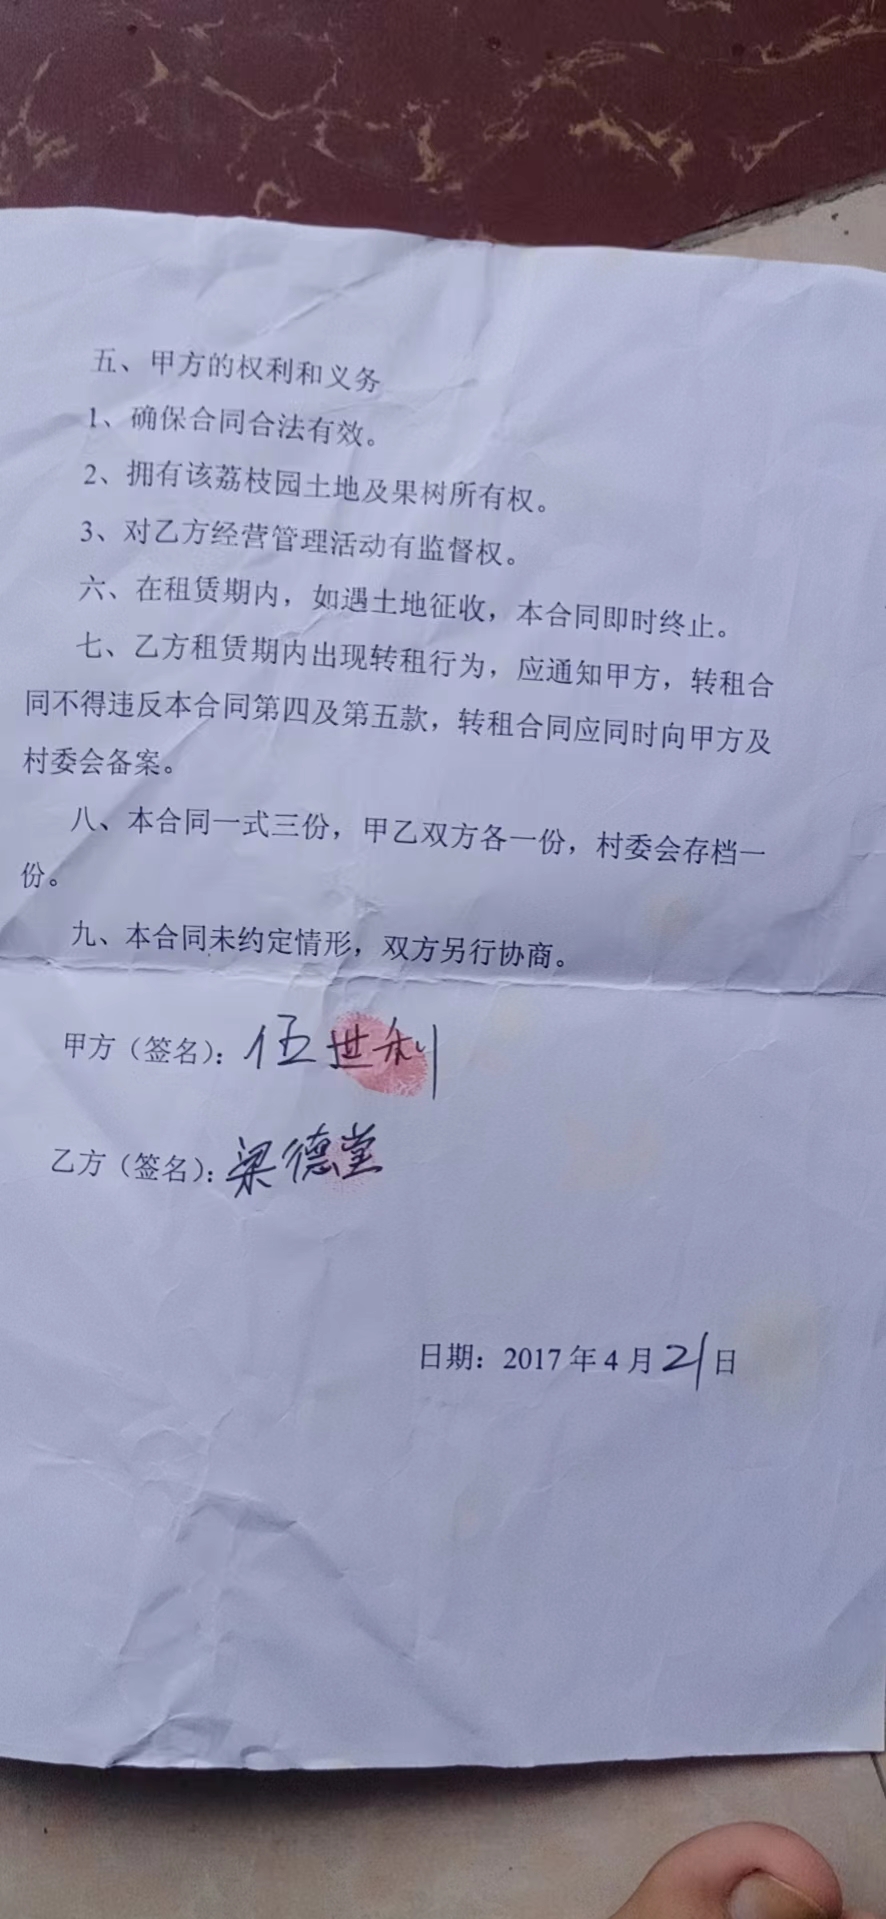 五、甲方的权利和义务
1、确保合同合法有效。
2、拥有该荔枝园土地及果树所有权。
3、对乙方经营管理活动有监督权。
六、在租赁期内，如遇土地征收，本合同即时终止。
七、乙方租赁期内出现转租行为，应通知甲方，转租合
同不得违反本合同第四及第五款，转租合同应同时向甲方及
村委会备案。
八、本合同一式三份，甲乙双方各一份，村委会存档一
份。
九、本合同未约定情形，双方另行协商。
甲方（签名）：伍世利
乙方（签名）：梁德堂
日期：2017年4月21日